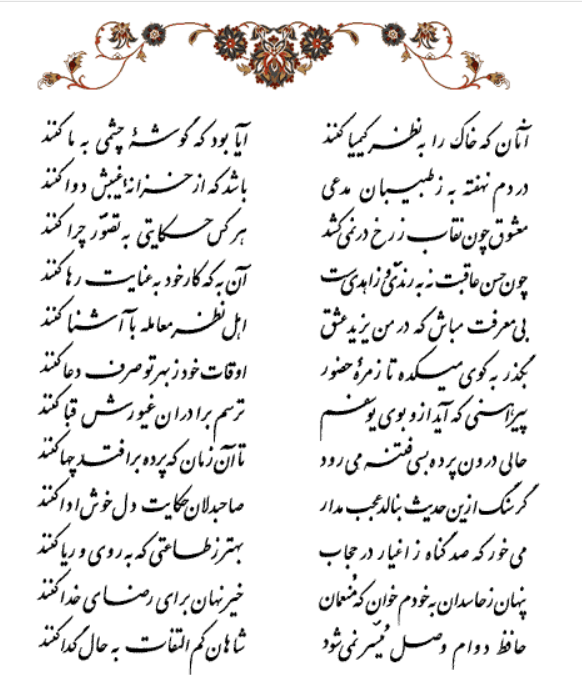 آنان که خاک را به نظر کیمیا کنند آیا بود که گوشهٔ چشمی به ما کنند
دردم نهفته به ز طبیبان مدعی باشد که از خزانهٔ غیبش دوا کنند
معشوق چون نقاب ز رخ در نمی‌کشد هر کس حکایتی به تصوّر چرا کنند
چون حسن عاقبت نه به رندیّ و زاهدیست آن به که کار خود به عنایت رها کنند
بی معرفت مباش که در من یزید عشق اهل نظر معامله با آشنا کنند
بگذر به کوی میکده تا زمرهٔ حضور اوقات خود ز بهر تو صرف دعا کنند
پیراهنی که آید ازو بوی یوسفم ترسم برادران غیورش قبا کنند
حالی درون پرده بسی فتنه می رود تا آن زمان که پرده برافتد چها کنند
گر سنگ ازین حدیث بنالد عجب مدار صاحبدلان حکایت دل خوش ادا کنند
می خور که صد گناه ز اغیار در حجاب بهتر ز طاعتی که به روی و ریا کنند
پنهان ز حاسدان به خودم خوان که مُنعمان خیر نهان برای رضای خدا کنند
حافظ دوام وصل مُیسّر نمی شود شاهان کم التفات به حال گدا کنند